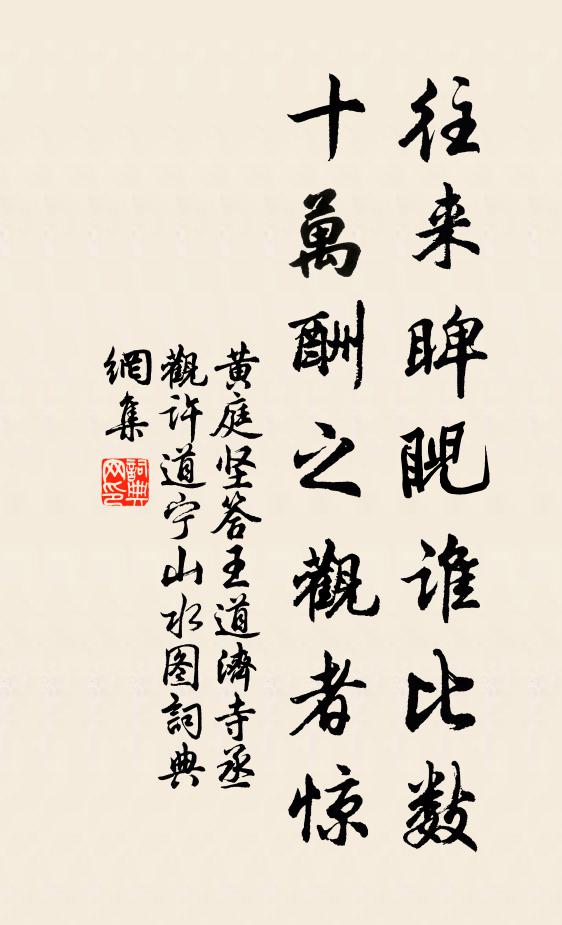 往来睥睨谁比数
十萬酬之觀者惊
黄庭坚答王道濟寺丞
觀许道宁山水图詞典
網集
詞典
网印